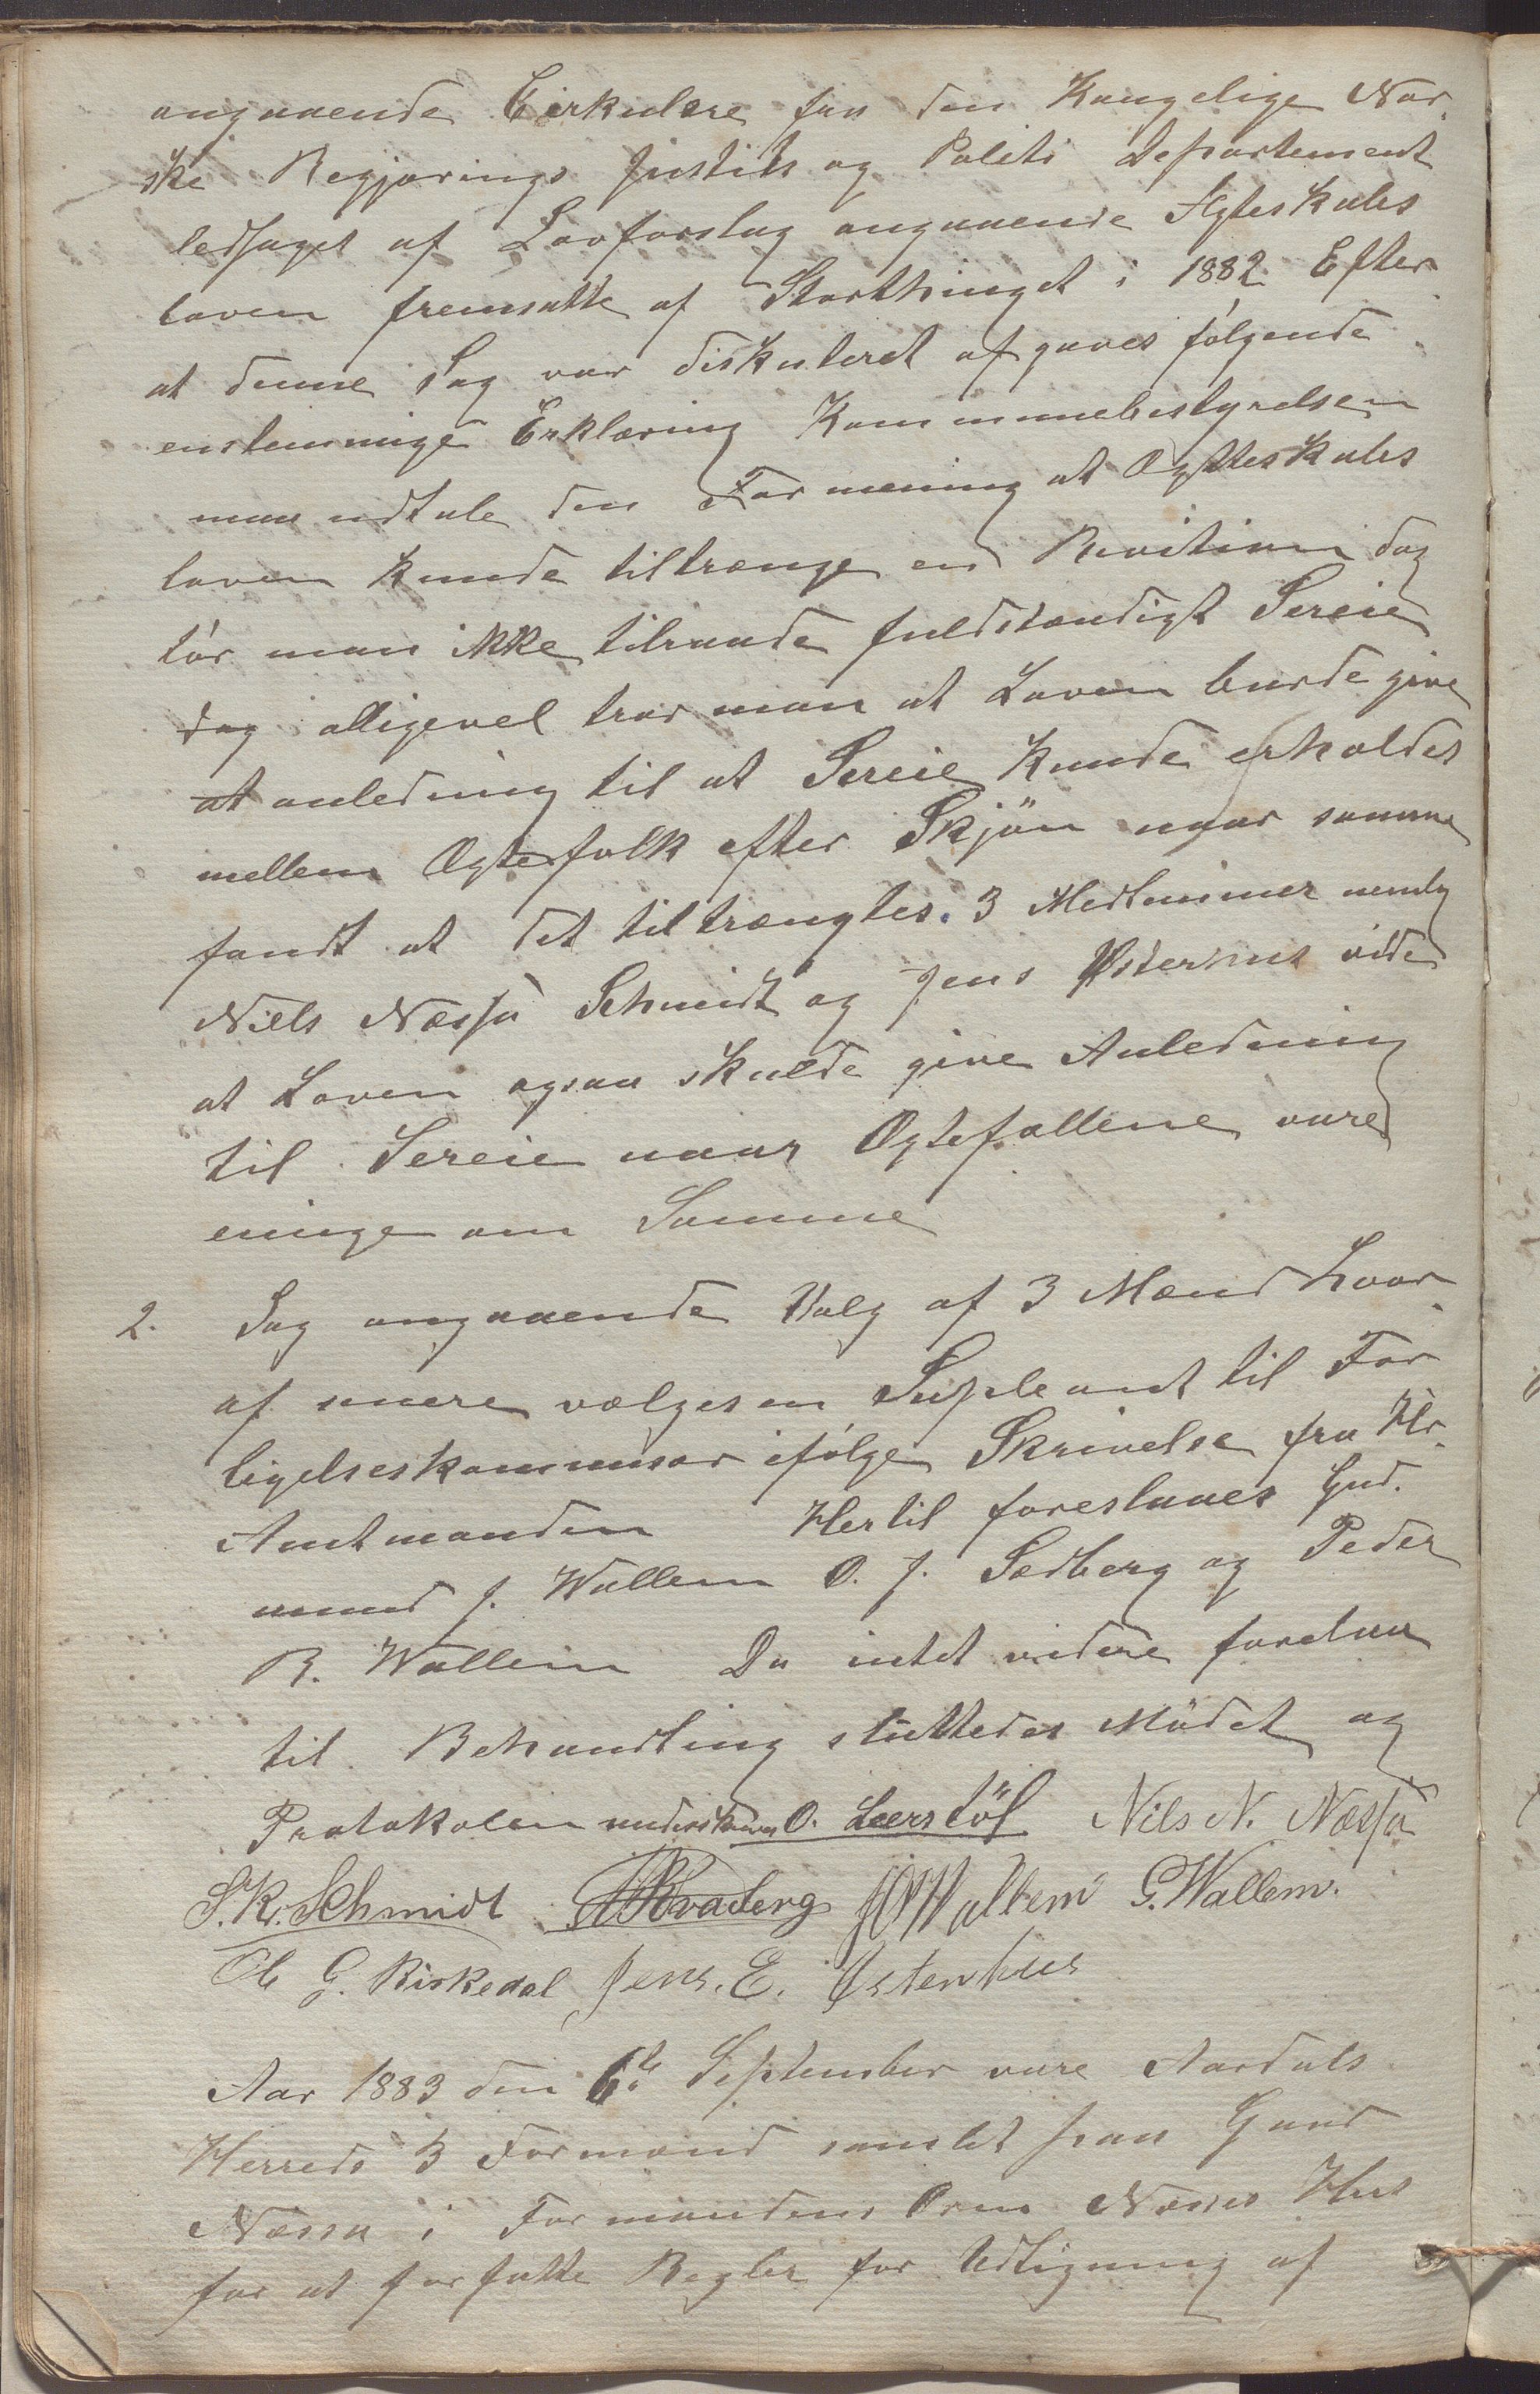 angaaende Cirkulere fra den Kongelige Nor
ske Regjerings Justits og Politi Departement
ledsaget af Lovforslag angaaende Ægteskabs
loven fremsatte af Storthinget i 1882 Efter
at denne Sag var diskuteret afgaves følgende
enstemmige Erklæring Kommunebestyrelsen
maa udtale den Formening at Ægtteskabs
loven kunde tiltrænge en Revition dog
tør man ikke tilraade fuldstændigt Sereie
dog alligevel tror man at Loven burde give
at anledning til at Sereie kunde erholdes
mellem Ægtefolk efter Skjøn naar samme
fandt at det tiltrængtes. 3 Medlemmer nemlig
Niels Næssø Schmidt og Jens Østerhus vilde
at Loven ogsaa skulde give Anledning
til Sereie naar Ægtefollene vare
eninge om Samme
2. Sag angaaende Valg af 3 Mænd hvor
af senere vælges en Supleant til For
ligelseskommisær ifølge Skrivelse fra Hr.
Amtmanden Hertil foreslaaes Gud.
mund J. Wallem O. J. Sedberg og Peder
R. Wallem Da intet videre forelaa
til Behandling sluttedes Mødet og
Protokolen underskreves O. Leerstöl Nils N. Næssø
S. K. Schmidt JO Wallem G. Wallem.
Ole G. Riskedal Jens. E. Østenhus
Aar 1883 den 6te September vare Aardals
Herreds 3 Formænd samlet paa Gaard
Næssa i Formandens Orm Næsses Hus
for at forfatte Regler for Udligning af